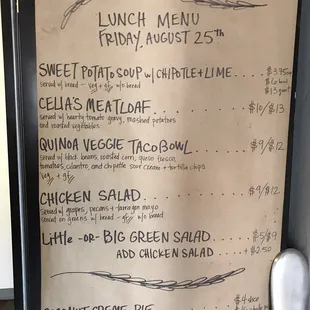 LUNCH MENU
FRIDAY, AUGUST 25th
SWEET POTATO SOUP w/ CHIPOTLE + LIME . . . . $3.75 cup
served w/ bread - veg + gf w/o bread $6 bowl
$13 quart
CELIA'S MEATLOAF . . . . . . . . . . . $10/$13
served w/ hearty tomato gravy, mashed potatoes
and roasted vegetables
QUINOA VEGGIE TACO BOWL . . . . . . . . $9/$12
served w/ black beans, roasted corn, queso fresco,
tomatoes, cilantro, and chipotle sour cream + tortilla chips
veg + gf
CHICKEN SALAD . . . . . . . . . . . . $9/$12
served w/ grapes, pecans + tarragon mayo
served on greens w/ bread - gf w/o bread
Little -OR- BIG GREEN SALAD . . . . . . $5/$9
ADD CHICKEN SALAD . . . . . + $2.50
COCONUT CREME PIE $4 slice